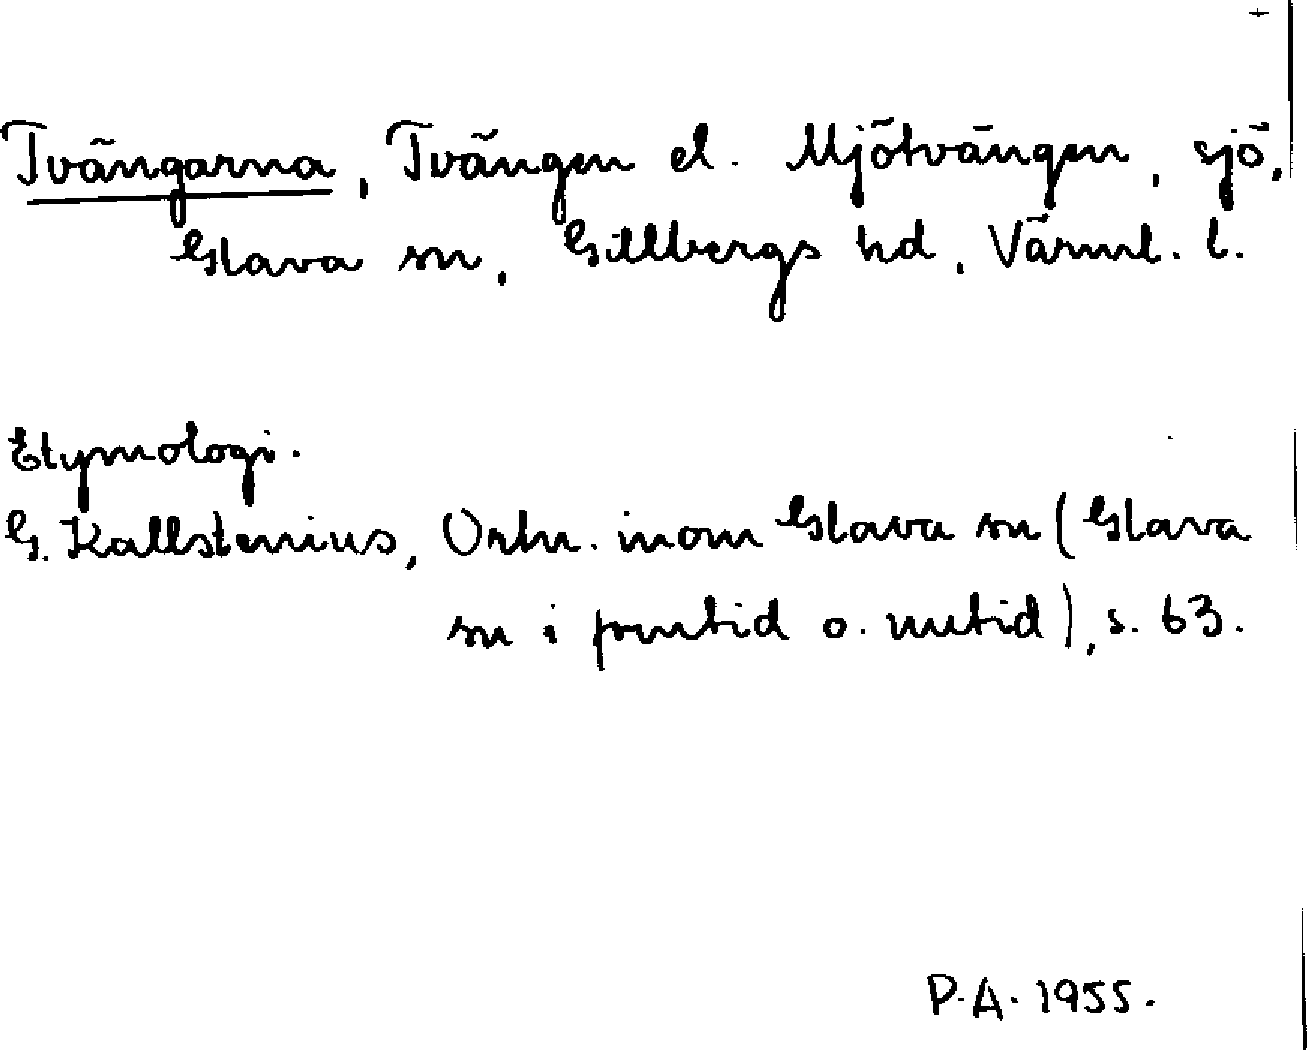 Tvängarna, Tvängen el. Mjötvängen, sjö,
Glava sn, Gillbergs hd, Värml. l.
Etymologi.
G. Kallstenius, Ortn. inom Glava sn (Glava
sn i forntid o. nutid), s. 63.
P.A. 1955.